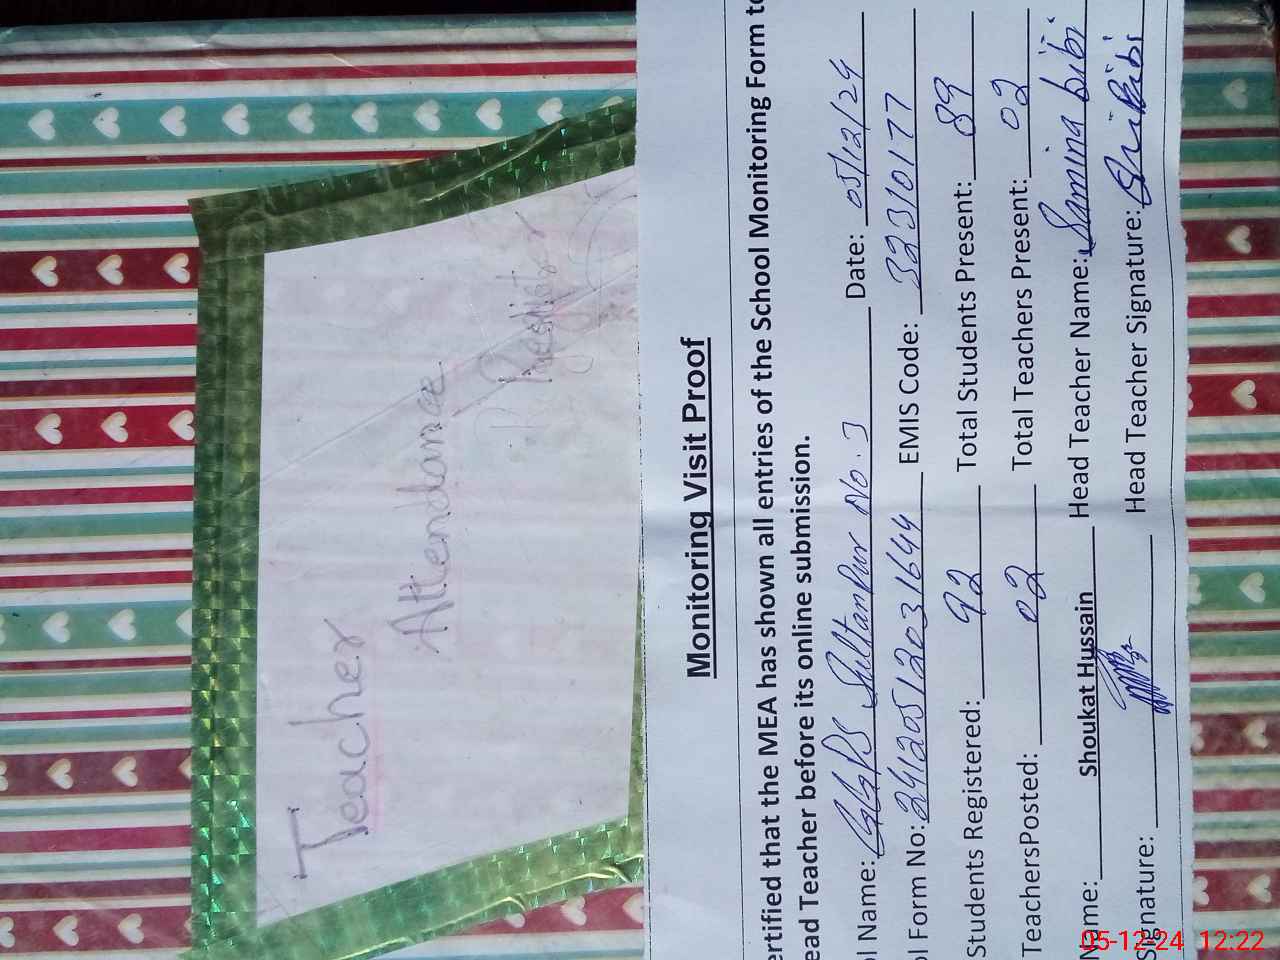 Teacher
Attendance
Register
Monitoring Visit Proof
ertified that the MEA has shown all entries of the School Monitoring Form to
ead Teacher before its online submission.
l Name: GGPS Sultanpur No. 3 Date: 05/12/24
l Form No: 24120512031644 EMIS Code: 32310177
Students Registered: 92 Total Students Present: 89
TeachersPosted: 02 Total Teachers Present: 02
Name: Shoukat Hussain Head Teacher Name: Samina bibi
Signature: Head Teacher Signature:
05-12-24 12:22